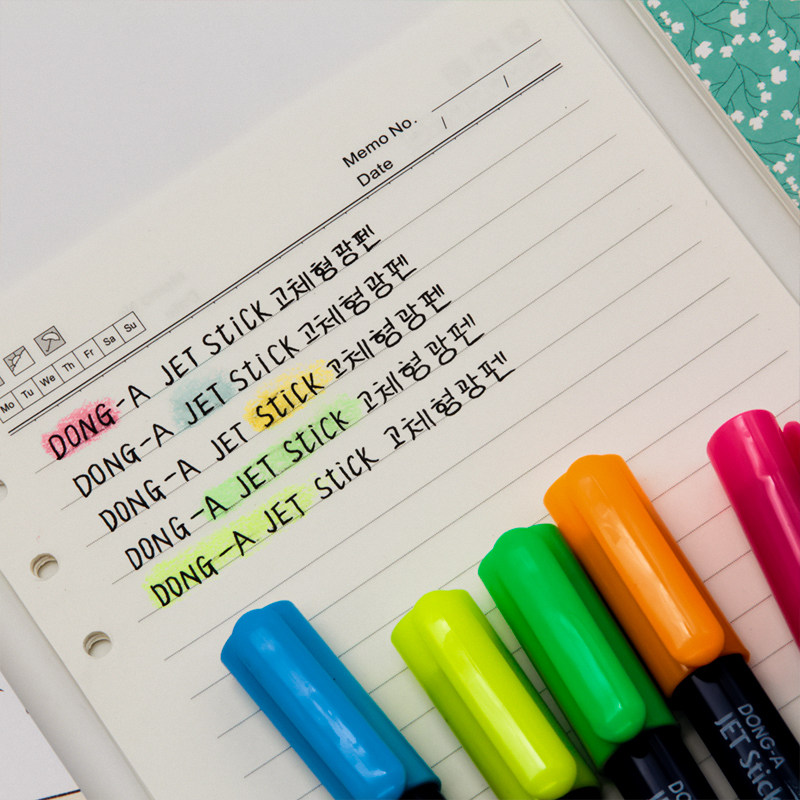 Memo No.
Date / /
Mo Tu We Th Fr Sa Su
DONG-A JET StiCK 고체형광펜
DONG-A JET StiCK 고체형광펜
DONG-A JET StiCK 고체형광펜
DONG-A JET StiCK 고체형광펜
DONG-A JET StiCK 고체형광펜
DONG-A
JET Stick
DONG-A
JET Stic